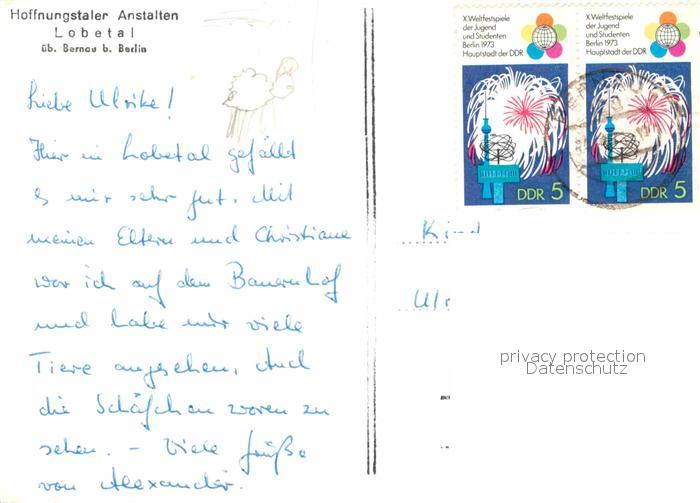 Hoffnungstaler Anstalten
Lobetal
üb. Bernau b. Berlin
Liebe Ulrike!
Hier in Lobetal gefällt
es mir sehr gut. Mit
meinen Eltern und Christiane
war ich auf dem Bauernhof
und habe mir viele
Tiere angesehen. Auch
die Schäfchen waren zu
sehen. – Viele Grüße
von Alexander.
X. Weltfestspiele
der Jugend
und Studenten
Berlin 1973
Hauptstadt der DDR
DDR 5
X. Weltfestspiele
der Jugend
und Studenten
Berlin 1973
Hauptstadt der DDR
DDR 5
privacy protection
Datenschutz